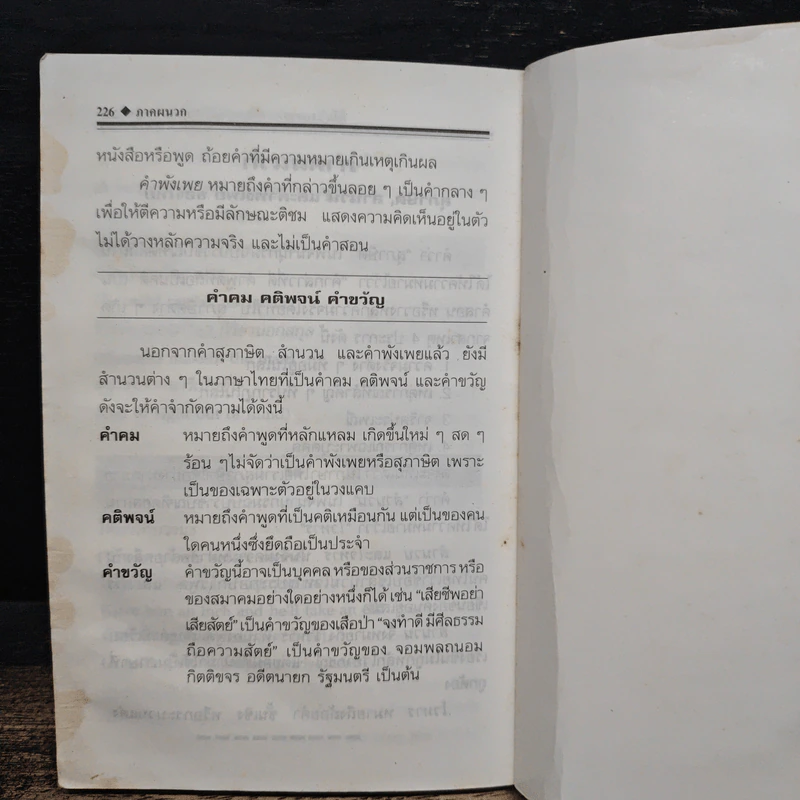 226 ◆ ภาคผนวก
หนังสือหรือพูด ถ้อยคำที่มีความหมายเกินเหตุเกินผล
คำพังเพย หมายถึงคำที่กล่าวขึ้นลอย ๆ เป็นคำกลาง ๆ
เพื่อให้ตีความหรือมีลักษณะติชม แสดงความคิดเห็นอยู่ในตัว
ไม่ได้วางหลักความจริง และไม่เป็นคำสอน
คำคม คติพจน์ คำขวัญ
นอกจากคำสุภาษิต สำนวน และคำพังเพยแล้ว ยังมี
สำนวนต่าง ๆ ในภาษาไทยที่เป็นคำคม คติพจน์ และคำขวัญ
ดังจะให้คำจำกัดความได้ดังนี้
คำคม หมายถึงคำพูดที่หลักแหลม เกิดขึ้นใหม่ ๆ สด ๆ
ร้อน ๆไม่จัดว่าเป็นคำพังเพยหรือสุภาษิต เพราะ
เป็นของเฉพาะตัวอยู่ในวงแคบ
คติพจน์ หมายถึงคำพูดที่เป็นคติเหมือนกัน แต่เป็นของคน
ใดคนหนึ่งซึ่งยึดถือเป็นประจำ
คำขวัญ คำขวัญนี้อาจเป็นบุคคล หรือของส่วนราชการ หรือ
ของสมาคมอย่างใดอย่างหนึ่งก็ได้ เช่น “เสียชีพอย่า
เสียสัตย์” เป็นคำขวัญของเสือป่า “จงทำดี มีศีลธรรม
ถือความสัตย์” เป็นคำขวัญของ จอมพลถนอม
กิตติขจร อดีตนายก รัฐมนตรี เป็นต้น